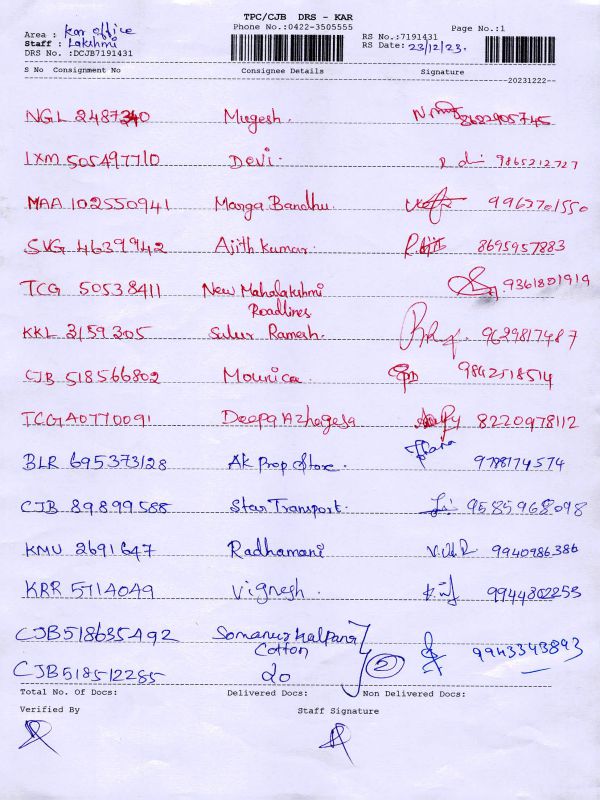 TPC/CJB DRS - KAR
Phone No.:0422-3505555
Page No.:1
Area : Kar office
Staff : Lakshmi
DRS No. :DCJB7191431
RS No.:7191431
RS Date: 23/12/23.
S No Consignment No Consignee Details Signature
20231222--
NGL 2487340 Mugesh. 8682905745
IXM 505497710 Devi. 9865212727
MAA 102550941 Marga Bandhu. 9962701550
SVG 4639942 Ajith Kumar. 8695957883
TCG 50538411 New Mahalakshmi 9361801919
Roadlines
KKL 2159205 Sulur Ramesh. 9629817487
CJB 518566802 Mounica. 9842518514
TCGA0770091 Deepa Azhagesa 8220978112
BLR 695373128 AK Prop Store. 9788174574
CJB 89899588 Star Transport. 9585968098
KMU 2691647 Radhamani 9940986386
KRR 5714049 Vignesh. 9944802253
CJB518635492 Somanur Kalpana 9943343893
Cotton
CJB518512285 do 2
Total No. Of Docs: Delivered Docs: Non Delivered Docs:
Verified By Staff Signature